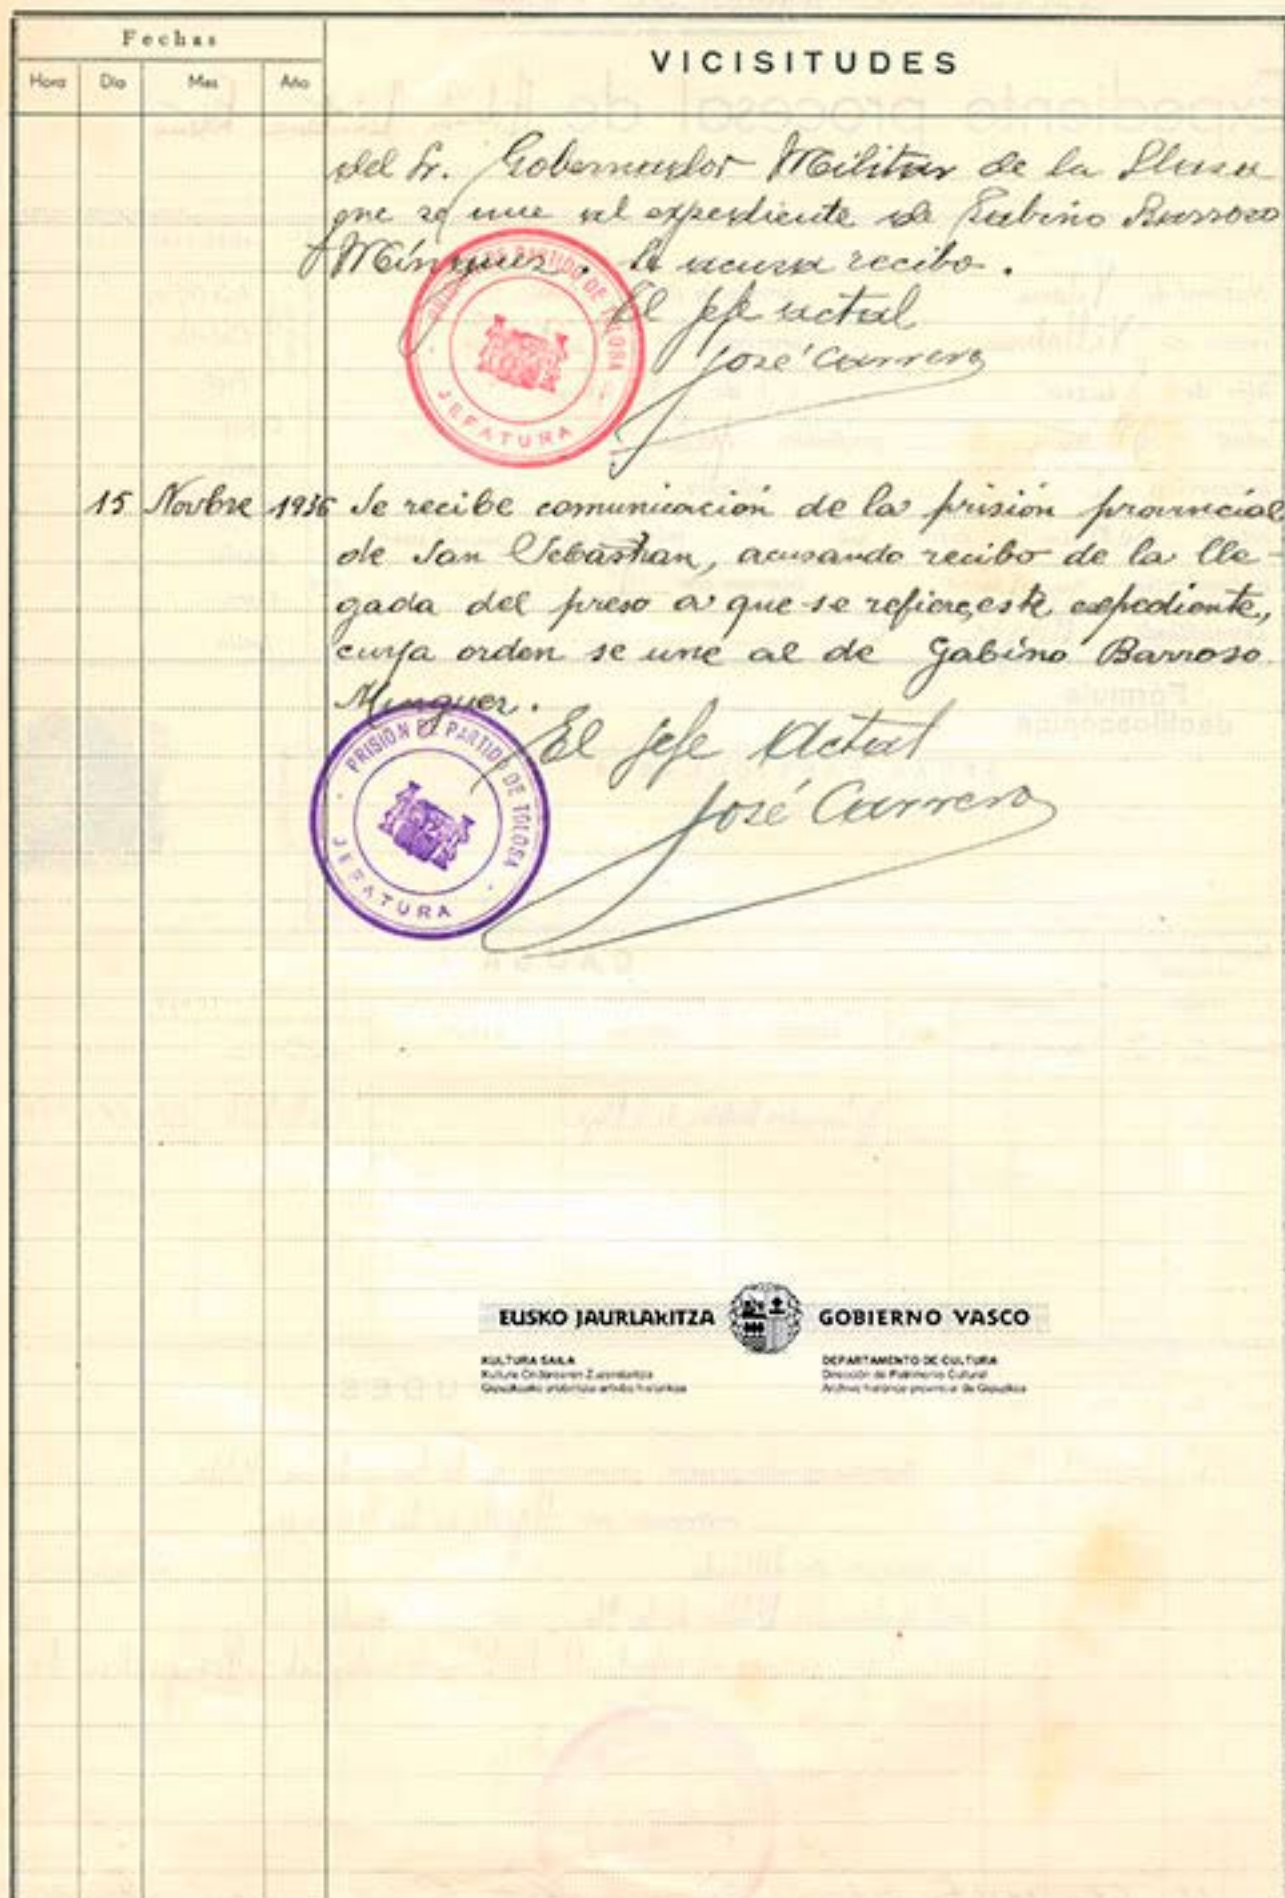 Fechas
VICISITUDES
Hora Dia Mes Año
del Sr. Gobernador Militar de la Plaza
que se une al expediente de Gabino Barroso
Mínguez. Se acusa recibo.
El jefe actal
José Carrero
PARTIDO DE TOLOSA
JEFATURA
15 Novbre 1936 Se recibe comunicación de la prisión provincial
de San Sebastian, acusando recibo de la lle-
gada del preso a que se refiere este expediente,
cuya orden se une al de Gabino Barroso
Minguez.
El jefe Actal
José Carrero
PRISION DE PARTIDO DE TOLOSA
JEFATURA
EUSKO JAURLARITZA GOBIERNO VASCO
KULTURA SAILA
DEPARTAMENTO DE CULTURA
Dirección de Patrimonio Cultural
Archivo histórico provincial de Gipuzkoa